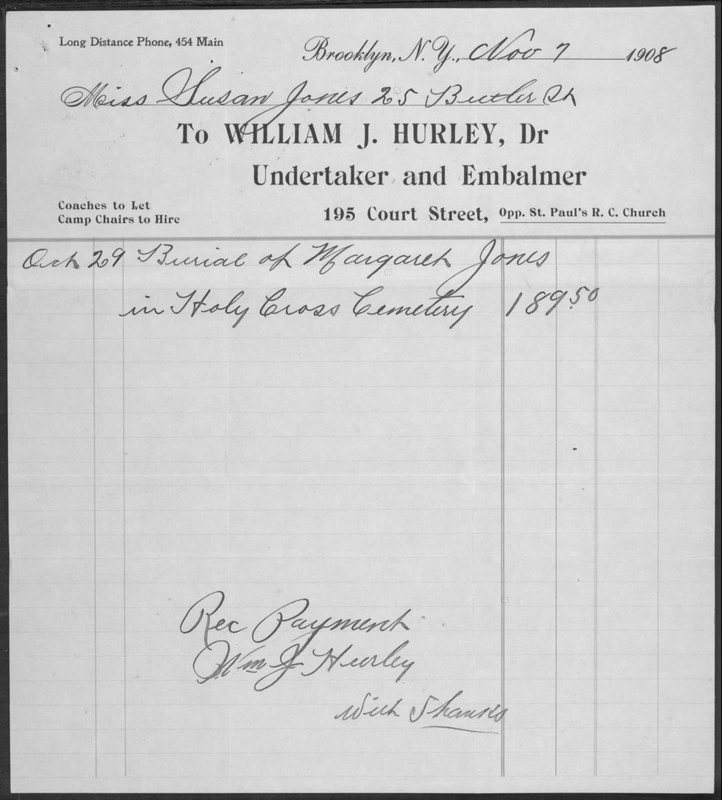 Long Distance Phone, 454 Main
Brooklyn, N. Y., Nov 7 1908
Miss Susan Jones 25 Butler St
To WILLIAM J. HURLEY, Dr
Undertaker and Embalmer
Coaches to Let
Camp Chairs to Hire
195 Court Street, Opp. St. Paul's R. C. Church
Oct 29 Burial of Margaret Jones
in Holy Cross Cemetery 189.50
Rec Payment
Wm J Hurley
With Thanks